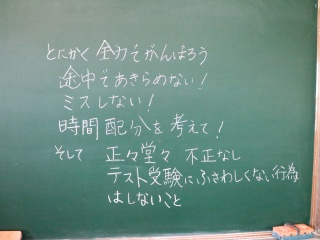 とにかく 全力でがんばろう
途中であきらめない!
ミスしない!
時間配分を考えて!
そして 正々堂々 不正なし
テスト受験にふさわしくない行為
はしないこと